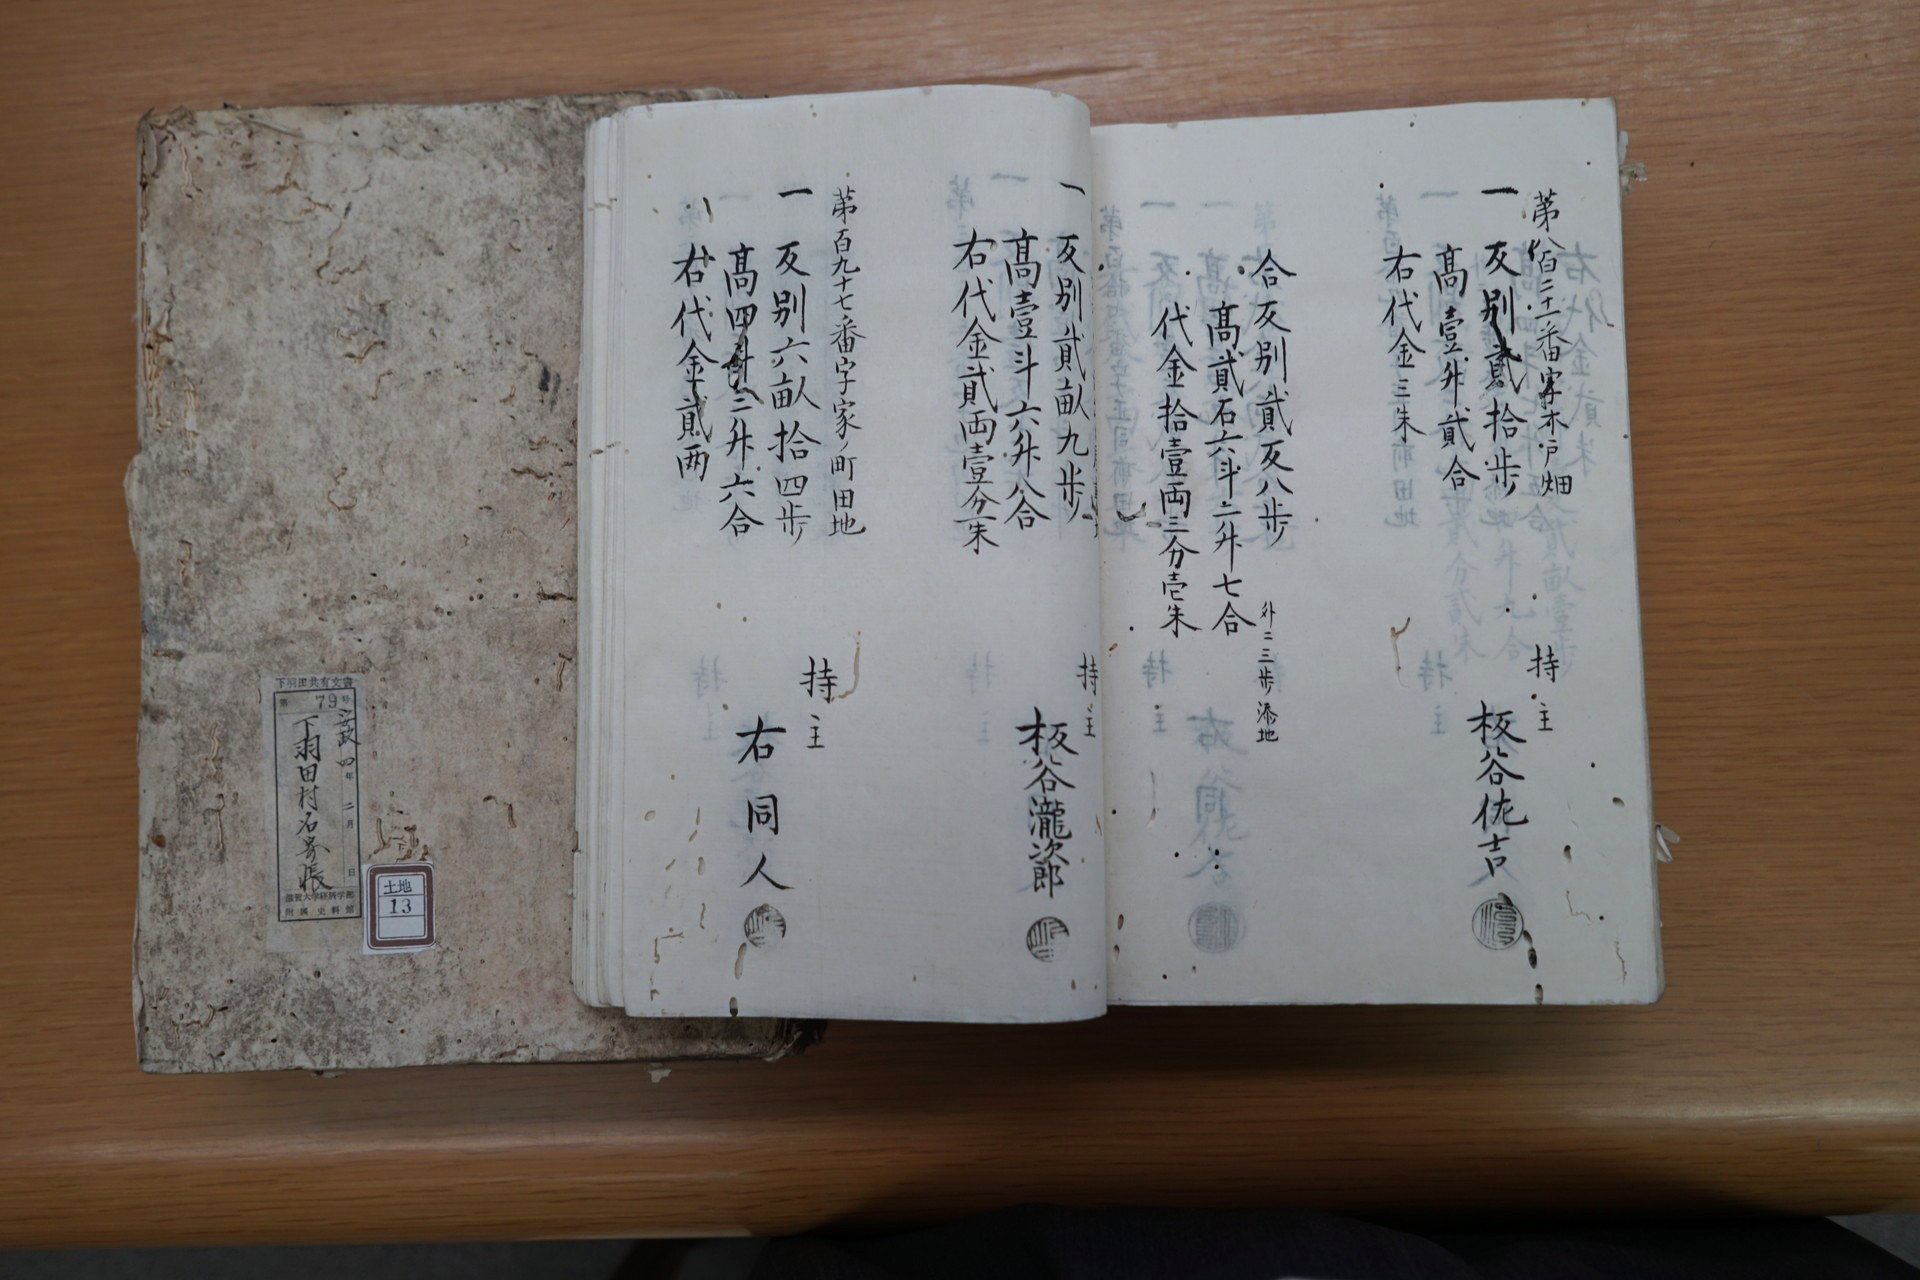 一
反別貳拾歩
高壹升貳合
右代金三朱
持主
板谷佐吉
合反別貳反八歩
外ニ三歩添地
高貳石六斗二升七合
代金拾壹両三分壱朱
一
反別貳畝九歩
高壹斗六升八合
右代金貳両壹分一朱
持主
板谷瀧次郎
第百九十七番字家ノ町田地
一
反別六畝拾四歩
高四斗二升六合
右代金貳両
持主
右同人
下羽田共有文書
第79号
安政四年二月日
下羽田村名寄帳
滋賀大学経済学部
附属史料館
土地
13